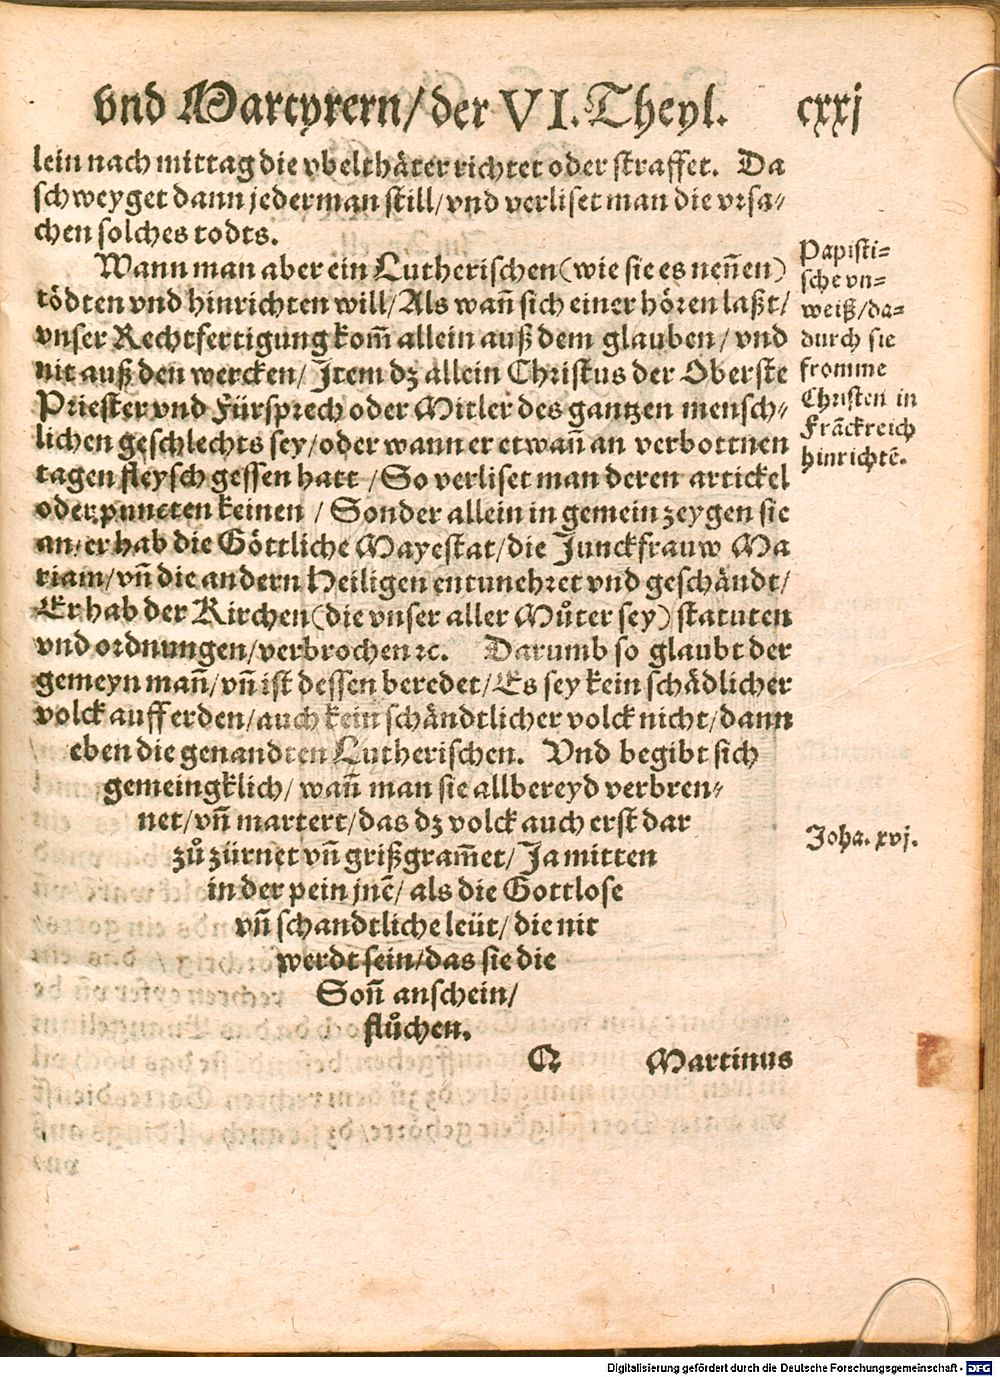 vnd Martyrern/der VI. Theyl. cxxj
lein nach mittag die vbelthäter richtet oder straffet. Da
schweyget dann jederman still/vnd verliset man die vrsa⸗
chen solches todts.
Wann man aber ein Lutherischen (wie sie es neñen)
tödten vnd hinrichten will/Als wañ sich einer hören laßt/
vnser Rechtfertigung kom̃ allein auß dem glauben/vnd
nit auß den wercken/Item dz allein Christus der Oberste
Priester vnd Fürsprech oder Mitler des gantzen mensch⸗
lichen geschlechts sey/oder wann er etwañ an verbottnen
tagen fleysch gessen hatt/So verliset man deren artickel
oder puncten keinen/Sonder allein in gemein zeygen sie
an/er hab die Göttliche Mayestat/die Junckfrauw Ma
riam/vñ die andern Heiligen entunehret vnd geschändt/
Er hab der Kirchen (die vnser aller Můter sey) statuten
vnd ordnungen/verbrochen ꝛc. Darumb so glaubt der
gemeyn mañ/vñ ist dessen beredet/Es sey kein schädlicher
volck auff erden/auch kein schändtlicher volck nicht/dann
eben die genandten Lutherischen. Vnd begibt sich
gemeingklich/wañ man sie allbereyd verbren⸗
net/vñ martert/das dz volck auch erst dar
zů zürnet vñ grißgram̃et/Ja mitten
in der pein jnē/als die Gottlose
vñ schandtliche leüt/die nit
werdt sein/das sie die
Soñ anschein/
flůchen.
Q Martinus
Papisti⸗
sche vn⸗
weiß/da⸗
durch sie
fromme
Christen in
Frāckreich
hinrichtē.
Joha. xvj.
Digitalisierung gefördert durch die Deutsche Forschungsgemeinschaft - DFG